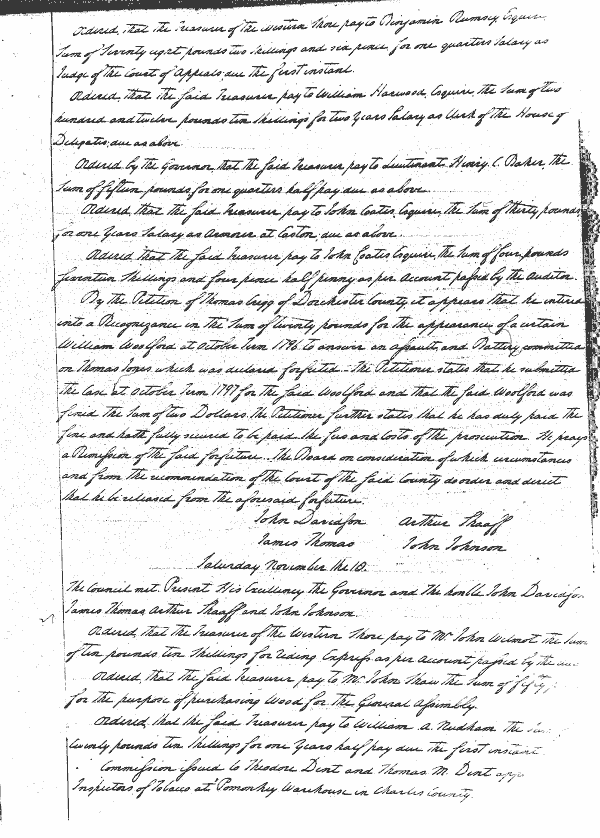 Ordered, that the Treasurer of the Western Shore pay to Benjamin Rumsey Esquire,
Sum of Seventy eight pounds two shillings and six pence for one quarters Salary as
Judge of the Court of Appeals, due the first instant.
Ordered, that the said Treasurer pay to William Harwood, Esquire, the Sum of two
hundred and twelve pounds ten shillings for two Years Salary as Clerk of the House of
Delegates, due as above.
Ordered by the Governor, that the said Treasurer pay to Lieutenant Henry C. Baker, the
Sum of fifteen pounds, for one quarters half pay due as above.
Ordered, that the said Treasurer pay to John Coates, Esquire, the Sum of thirty pounds
for one Years Salary as Armorer at Easton, due as above.
Ordered, that the said Treasurer pay to John Coates Esquire, the Sum of four pounds
seventeen shillings and four pence half penny as per Account passed by the Auditor.
By the Petition of Thomas of Dorchester County, it appears that he entered
into a Recognizance in the Sum of twenty pounds for the appearance of a certain
William Woolford at October Term 1796 to answer an assault, and Battery committed
on Thomas Jones which was declared forfeited. The Petitioner states that he submitted
the Case at October Term 1797 for the said Woolford and that the said Woolford was
fined the Sum of two Dollars. The Petitioner further states that he has duly paid the
fine and hath fully secured to be paid the fees and Costs of the prosecution. He prays
a Remission of the said forfeiture. The Board on consideration of which circumstances
and from the recommendation of the Court of the said County do order and direct
that he be released from the aforesaid forfeiture.
John Davidson Arthur Shaaff
James Thomas John Johnson
Saturday November the 18.
The Council met. Present His Excellency the Governor and the honble John Davidson
James Thomas, Arthur Shaaff and John Johnson.
Ordered, that the Treasurer of the Western Shore pay to Mr. John Wilmot the Sum
of ten pounds ten shillings for riding Express as per Account passed by the
Ordered, that the said Treasurer pay to Mr. John Shaw the Sum of fifty
for the purpose of purchasing Wood for the General Assembly.
Ordered, that the said Treasurer pay to William A. Needham the
twenty pounds ten shillings for one Years half pay due the first instant
Commission issued to Theodore Dent and Thomas M. Dent
Inspectors of Tobacco at Pomonkey Warehouse in Charles County.